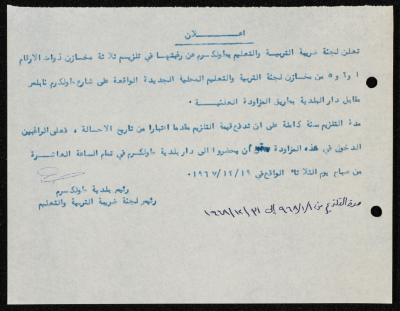 اعـــلان
تعلن لجنة ضريبة التربية والتعليم بطولكرم عن رغبتها في تلزيم ثلاثة مخازن ذوات الارقام
١ و ٢ و ٥ من مخازن لجنة التربية والتعليم المحلية الجديدة الواقعة على شارع طولكرم نابلس
مقابل دار البلدية بطريق المزاودة العلنية .
مدة التلزيم سنة كاملة على ان تدفع قيمة التلزيم مقدما اعتبارا من تاريخ الاحالة ، فعلى الراغبين
الدخول في هذه المزاودة ان يحضروا الى دار بلدية طولكرم في تمام الساعة العاشرة
من صباح يوم الثلاثاء الواقع في ١٩٦٧/١٢/١٩ .
رئيس بلدية طولكرم
رئيس لجنة ضريبة التربية والتعليم
مدة التلزيم من ٩٦٨/١/١ الى ١٩٦٨/١٢/٣١